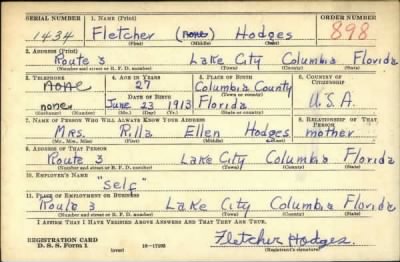 SERIAL NUMBER 1. NAME (Print) ORDER NUMBER
1434 Fletcher (none) Hodges 898
(First) (Middle) (Last)
2. ADDRESS (Print)
Route 3 Lake City Columbia Florida
(Number and street or R. F. D. number) (Town) (County) (State)
3. TELEPHONE 4. AGE IN YEARS 5. PLACE OF BIRTH 6. COUNTRY OF CITIZENSHIP
none 27 Columbia County
DATE OF BIRTH (Town or county)
none June 23 1913 Florida U.S.A.
(Mo.) (Day) (Yr.) (State or country)
7. NAME OF PERSON WHO WILL ALWAYS KNOW YOUR ADDRESS 8. RELATIONSHIP OF THAT PERSON
Mrs. Rilla Ellen Hodges mother
(Mr., Mrs., Miss) (First) (Middle) (Last)
9. ADDRESS OF THAT PERSON
Route 3 Lake City Columbia Florida
(Number and street or R. F. D. number) (Town) (County) (State)
10. EMPLOYER'S NAME
"Self"
11. PLACE OF EMPLOYMENT OR BUSINESS
Route 3 Lake City Columbia Florida
(Number and street or R. F. D. number) (Town) (County) (State)
I AFFIRM THAT I HAVE VERIFIED ABOVE ANSWERS AND THAT THEY ARE TRUE.
REGISTRATION CARD Fletcher Hodges
D. S. S. Form 1 (over) (Registrant's signature)